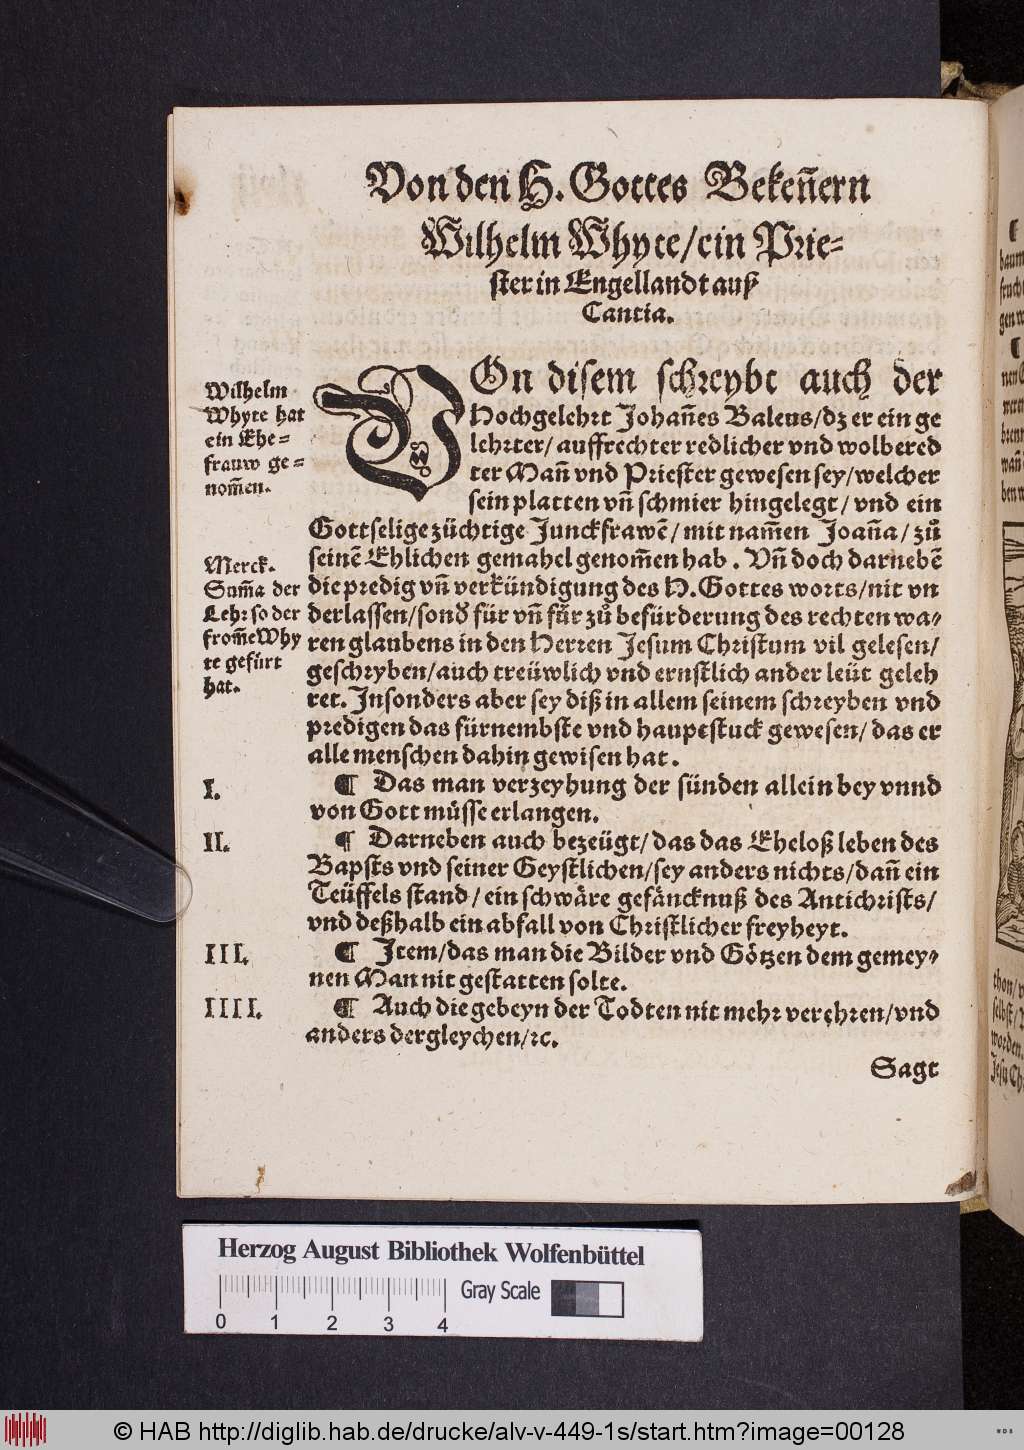 Von den H. Gottes Bekeñern
Wilhelm Whyte/ein Prie=
ster in Engellandt auß
Cantia.
VOn disem schreybt auch der
Hochgelehrt Johañes Baleus/dz er ein ge
lehrter/ auffrechter redlicher vnd wolbered
ter Mañ vnd Priester gewesen sey/welcher
sein platten vñ schmier hingelegt/ vnd ein
Gottselige züchtige Junckfrawẽ/ mit nam̃en Joaña/ zů
seinẽ Ehlichen gemahel genom̃en hab. Vñ doch darnebẽ
die predig vñ verkündigung des H. Gottes worts/nit vn
derlassen/sond' für vñ für zů befürderung des rechten wa=
ren glaubens in den Herren Jesum Christum vil gelesen/
geschryben/auch treüwlich vnd ernstlich ander leüt geleh
ret. Insonders aber sey diß in allem seinem schreyben vnd
predigen das fürnembste vnd hauptstuck gewesen/ das er
alle menschen dahin gewisen hat.
¶ Das man verzeyhung der sünden allein bey vnnd
von Gott müsse erlangen.
¶ Darneben auch bezeügt/ das das Eheloß leben des
Bapsts vnd seiner Geystlichen/sey anders nichts/dañ ein
Teüffels stand/ ein schwäre gefäncknuß des Antichrists/
vnd deßhalb ein abfall von Christlicher freyheyt.
¶ Item/das man die Bilder vnd Götzen dem gemey=
nen Man nit gestatten solte.
¶ Auch die gebeyn der Todten nit mehr verehren/vnd
anders dergleychen/ꝛc.
Sagt
Wilhelm
Whyte hat
ein Ehe=
frauw ge=
nom̃en.
Merck.
Sum̃a der
Lehr so der
from̃e Why
te gefürt
hat.
I.
II.
III.
IIII.
Herzog August Bibliothek Wolfenbüttel
0 1 2 3 4
Gray Scale
© HAB http://diglib.hab.de/drucke/alv-v-449-1s/start.htm?image=00128